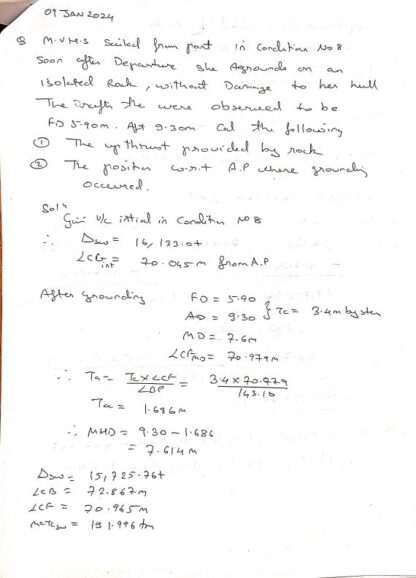 09 JAN 2024
Q M.V.H.S Sailed from port in Condition No 8
Soon after Departure she Agrounds on an
isolated Rock, without Damage to her hull
The Drafts the were observed to be
FD 5.90m. Aft 9.30m Cal the following
① The up thrust provided by rock
② The position w.r.t A.P where grounding
occurred.
Sol
initial in Condition No 8
∴ Δsw = 16,133.0t
LCG int = 70.045m from A.P
After grounding FD = 5.90
AD = 9.30 } Tc = 3.4m by stern
MD = 7.6m
LCF MD = 70.979m
∴ Ta = Tc x LCF / LBP = 3.4 x 70.979 / 143.16
Ta = 1.686m
∴ MHD = 9.30 - 1.686
= 7.614m
Δsw = 15,725.76t
LCB = 72.867m
LCF = 70.965m
MCTC sw = 191.996tm